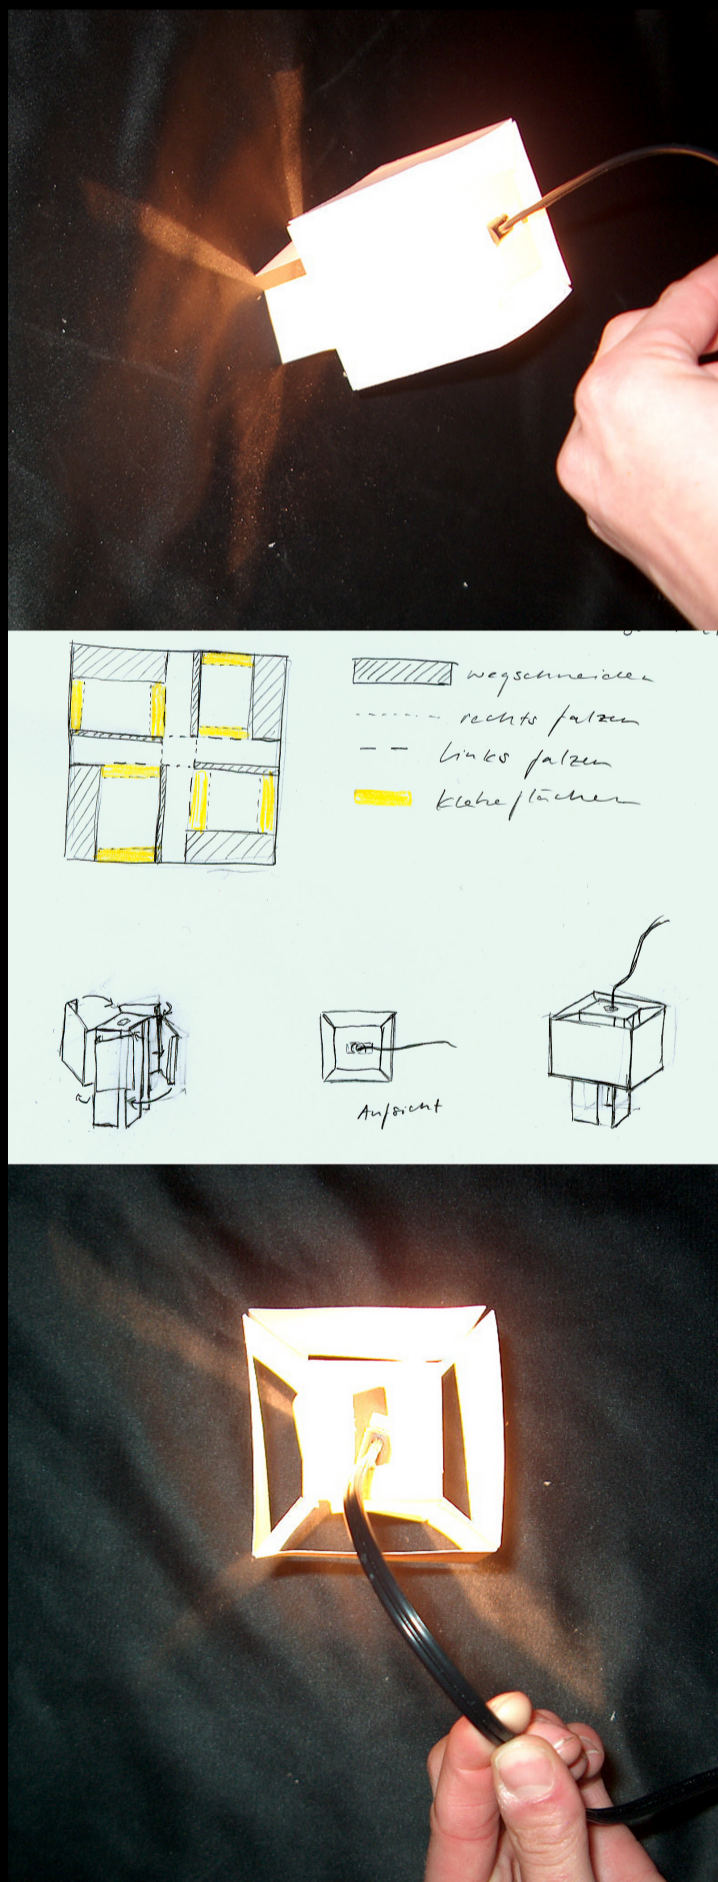 wegschneiden
rechts falzen
links falzen
Klebeflächen
Aufsicht